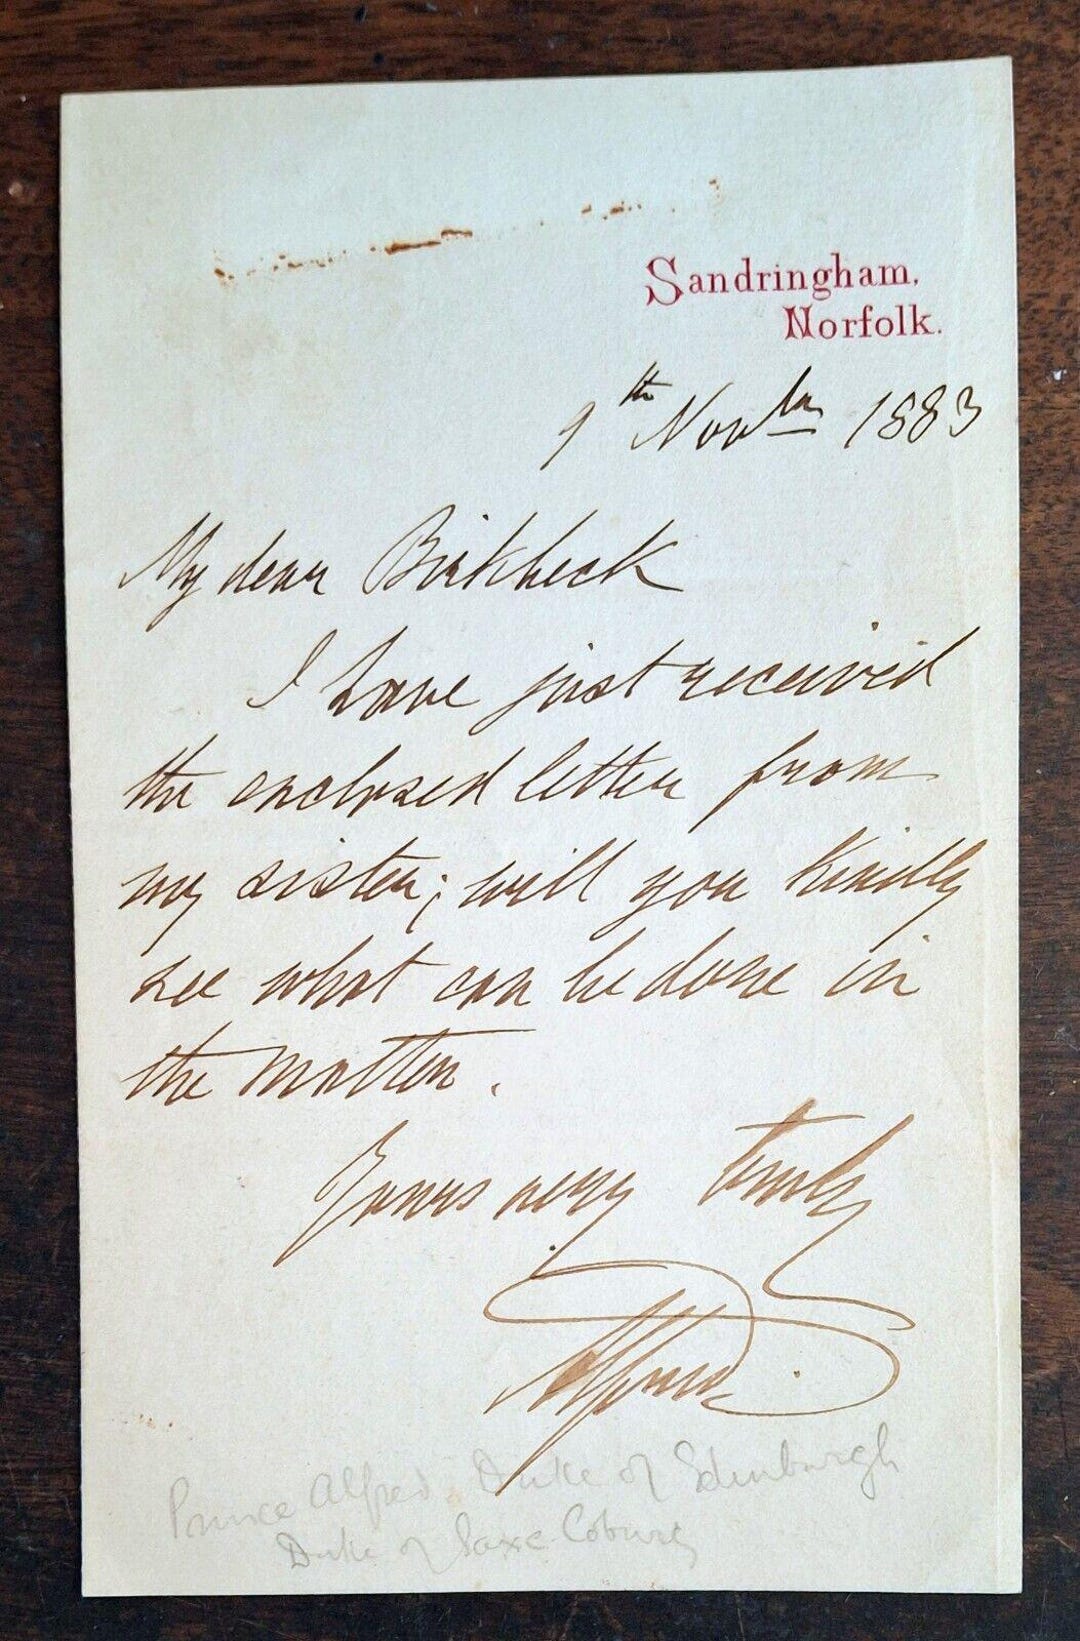 Sandringham,
Norfolk.
9th Novber 1883
My dear Birkbeck
I have just received
the enclosed letter from
my sister; will you kindly
see what can be done in
the matter.
Yours very truly
Alfred
Prince Alfred, Duke of Edinburgh
Duke of Saxe Coburg